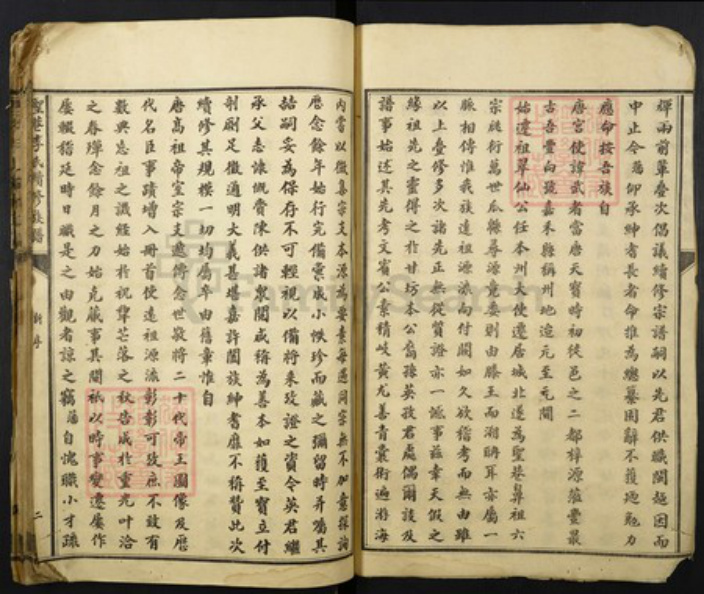 輝兩前輩叠次倡議續修宗譜嗣以先君供職閩越因而
中止今蕩仰承紳耆長者命推為總纂固辭不獲迺勉力
應命按吾族自
唐宮使諱武者當唐天寶時初徙邑之二都梓源蘊豐最
古吾豐向號嘉禾縣稱州地迨元至元間
始遷祖翠仙公任本州大使遷居城北遂為聖巷鼻祖六
宗瓞衍萬世瓜緜尋源竟委則由滕王而湖耳亦屬一
脈相傳惟我族遠祖源派向付闕如久欲稽考而無由雖
以上叠修多次諸先正無從質證亦一憾事茲幸天假之
緣祖先之靈得之於甘坊本公裔孫英孜君處偶爾談及
譜事始述其先考文賓公素精岐黃尤善青囊術遍游海
內嘗以徵集宗支本源為要素每遇同宗無不加意探詢
歷念餘年始行完備彙成小帙珍而藏之彌留時并囑其
詰嗣妥為保存不可輕視以備將來攷證之資今英君繼
承父志慷慨賫陳供諸眾閱咸稱為善本如獲至寶立付
剞劂足徵通明大義甚堪嘉許闔族紳耆靡不稱贊此次
續修其規模一切均屬率由舊章惟自
唐高祖帝室宗支遞傳念世敬將二十代帝王圖像及歷
代名臣事蹟增入冊首使遠祖源流彰彰可攷庶不致有
數典忘祖之譏經始於祝犂芒落之秋告成於重光叶洽
之春殫念餘月之力始克蕆事其間祇以時事變遷屢作
屢輟稽延時日職是之由觀者諒之竊蕩自愧職小才疎
聖巷李氏續修族譜
新序
二
FamilySearch